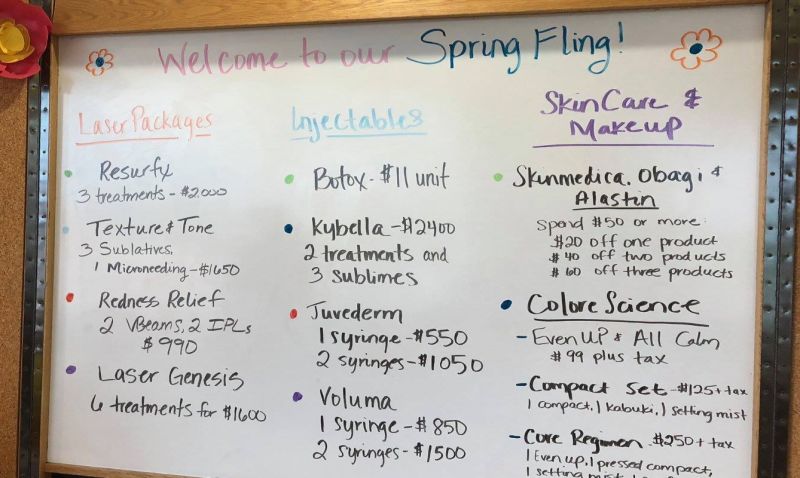 Welcome to our Spring Fling!
Laser Packages
Resurfx
3 treatments - $2,000
Texture & Tone
3 Sublatives,
1 Microneeding - $1650
Redness Relief
2 VBeams, 2 IPLs
$990
Laser Genesis
6 treatments for $1600
Injectables
Botox - $11 unit
Kybella - $2400
2 treatments and
3 sublimes
Juvederm
1 syringe - $550
2 syringes - $1050
Voluma
1 syringe - $850
2 syringes - $1500
SkinCare &
Makeup
Skinmedica, Obagi &
Alastin
Spend $50 or more:
$20 off one product
$40 off two products
$60 off three products
ColoreScience
- Even Up & All Calm
$99 plus tax
- Compact Set - $125 + tax
1 compact, 1 kabuki, 1 setting mist
- Core Regimen - $250 + tax
1 Even up, 1 pressed compact,
1 setting mist